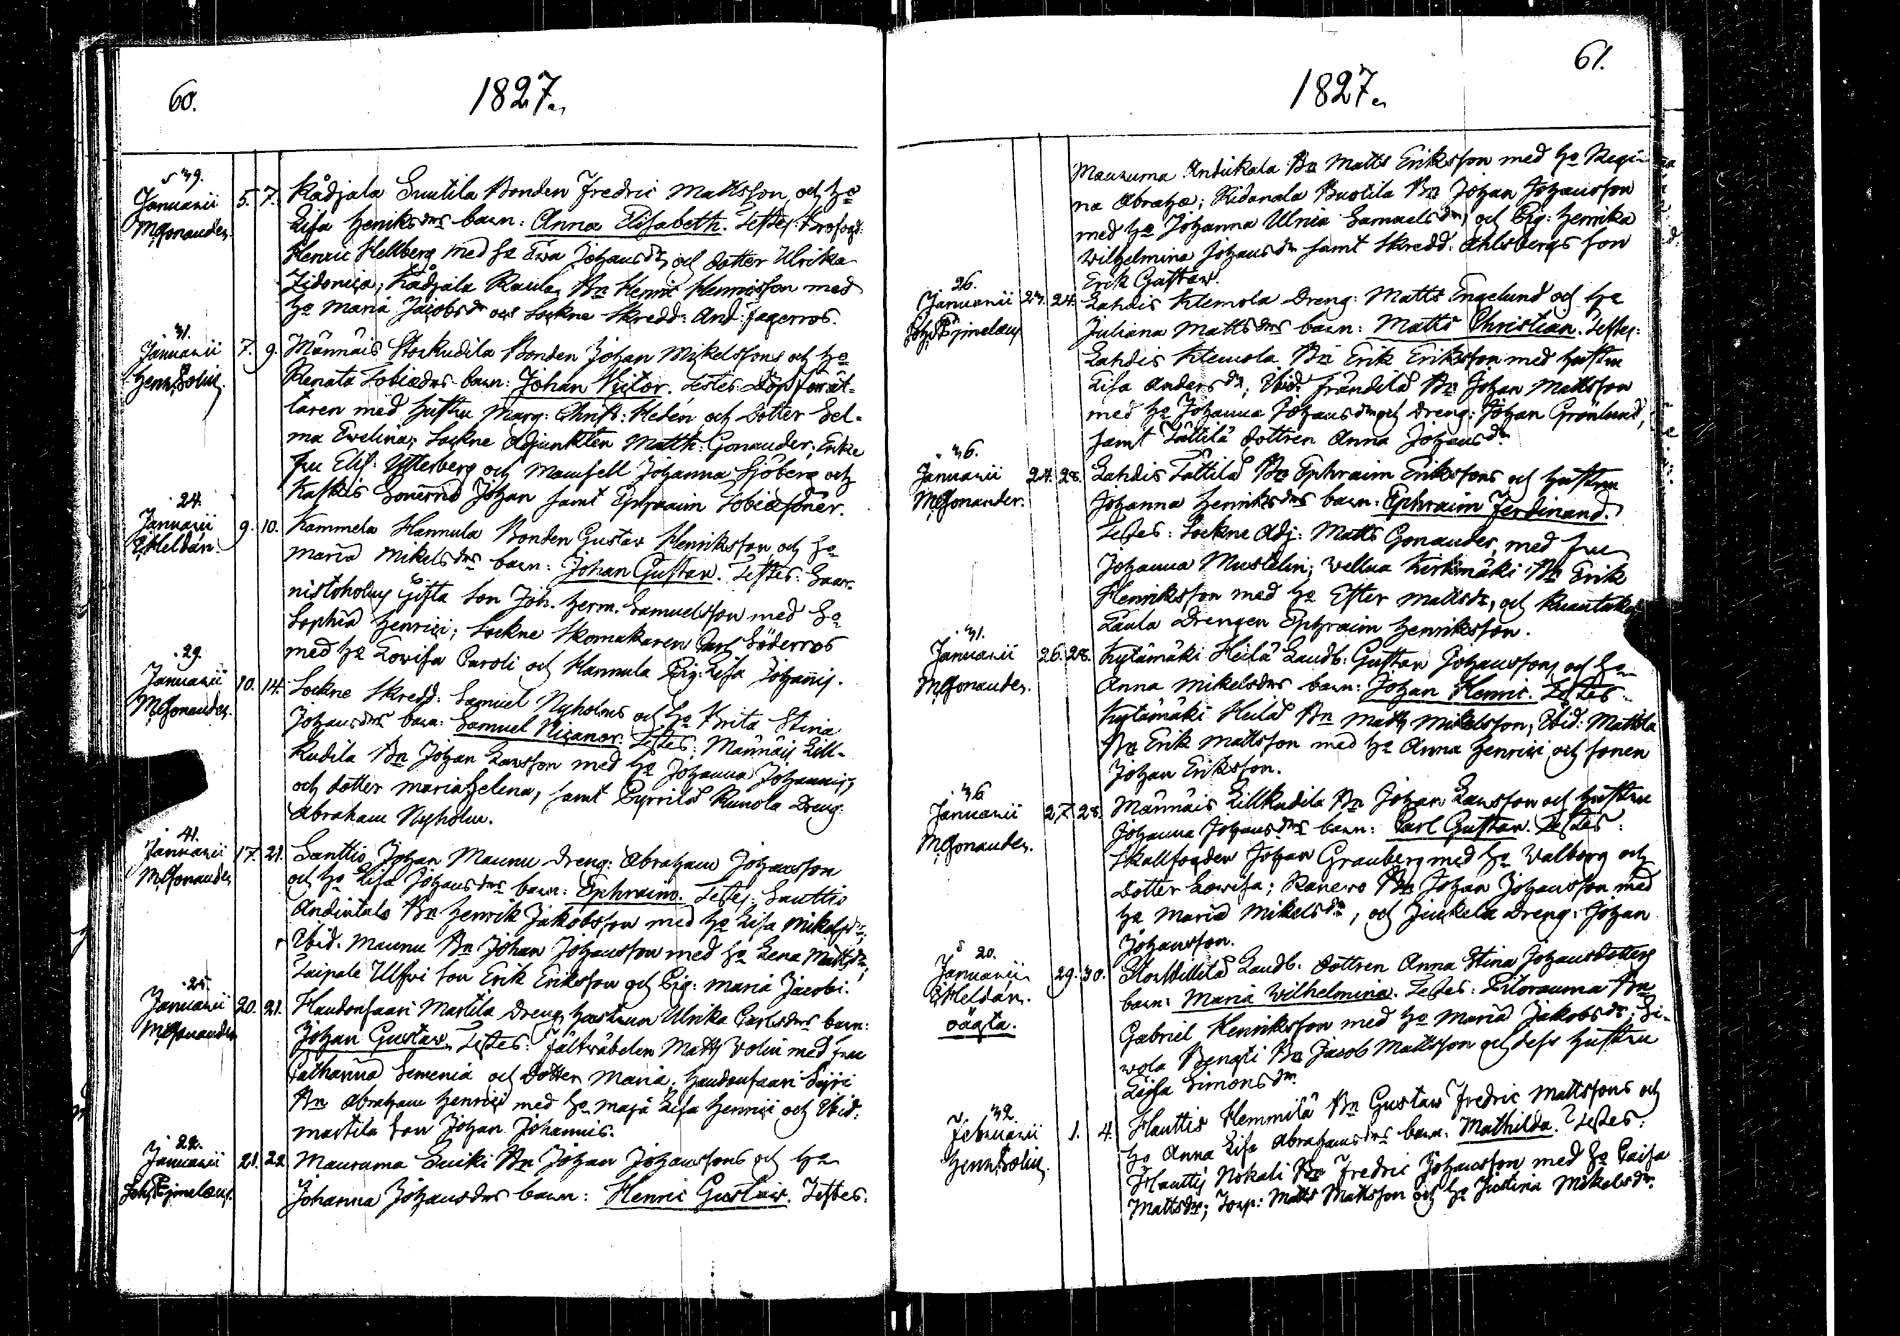 60.
1827.
39.
Januarii 5. 7. Kådjala Suutila Bonden Fredric Mattsson och Ho
MGonander. Lisa Henriksdrs barn: Anna Elisabeth. Testes: Profogd.
Henric Hellberg med Ho Ewa Johansdr, och dotter Ulrika
Zidonia, Kådjala Raula, Bn Henric Henricsson med
Ho Maria Jacobsdr och Sockne Skredd: And: Fagerros.
31.
Januarii 7. 9. Männäis Storkudila Bonden Johan Mikelssons och Ho
Renata Tobiædrs barn: Johan Victor. Testes:
taren med hustru Marg: Christ: Hedén och Dotter Sel-
ma Ewelina, Sockne Adjunkten Matth: Gonander, Enke
fru Elis: Ytterberg och Mamsell Johanna Sjöberg och
Johan samt Ephraim Tobiæsöner.
24.
Januarii 9. 10. Kammela Hannula Bonden Gustav Henriksson och Ho
EHeldán. Maria Mikelsdrs barn: Johan Gustav. Testes:
Gifta Son Joh. Herm. Samuelsson med Ho
Sophia Henrici; Sockne Skomakaren Carl Söderros
med Ho Lovisa Caroli och Hannula Pig: Lisa Johannis.
29.
Januarii 10. 14. Sockne Skredd: Samuel Nyholms och Ho Brita Stina
MGonander. Johansdrs barn: Samuel Nicanor. Testes: Männäis Lill-
kudila Bn Johan Larsson med Ho Johanna Johannis,
och dotter Maria Helena, samt Pyrrilä Runola Dreng:
Abraham Nyholm.
41.
Januarii 17. 21. Santtio Johan Maunu Dreng: Abraham Johansson
MGonander och Ho Lisa Johansdrs barn: Ephraim. Testes: Santtio
Andintalo Bn Henrik Jakobsson med Ho Lisa Mikelsdr;
Ibid. Maunu Bn Johan Johansson med Ho Lena Mattsdr,
Taipale Ulfwi Son Erik Eriksson och Pig: Maria Jacobi.
25.
Januarii 20. 21. Haudonsaari Martila Dreng: hustrun Ulrika Carlsdrs barn:
MGonander Johan Gustav. Testes: Fältväbelen Matts Wolin med fru
Catharina Semenia och Dotter Maria; Haudonsaari Sipri
Bn Abraham Henrici med Ho Maja Lisa Henrici och Ibid:
Martila Son Johan Johannis.
22.
Januarii 21. 22. Maununa Suiki Bn Johan Johanssons och Ho
Johanna Johansdrs barn: Henric Gustav. Testes:
61.
1827.
Maununa Andukala Bn Matts Eriksson med Ho Regi-
na Abrahæ; Ridanala Bustila Bn Johan Johansson
med Ho Johanna Ulrica Samuelsdr, och Pig: Henrika
Wilhelmina Johansdr samt Skredd. Ahlsbergs son
Erik Gustav.
26.
Januarii 23. 24. Lahdis Klemola Dreng: Matts Engelund och Ho
Juliana Mattsdrs barn: Matts Christian. Testes:
Lahdis Klemola Bn Erik Eriksson med hustru
Lisa Andersdr; Ibid: Frändilä Bn Johan Mattsson
med Ho Johanna Johansdr och Dreng: Johan Grönlund,
samt Tättilä dottren Anna Johansdr.
36.
Januarii 24. 28. Lahdis Tättilä Bn Ephraim Erikssons och hustru
MGonander. Johanna Henriksdrs barn: Ephraim Ferdinand.
Testes: Sockne Adj: Matts Gonander, med fru
Johanna Mustelin; Wellua Kirkmäki Bn Erik
Henriksson med Ho Ester Mattsdr, och
Laula Drengen Ephraim Henriksson.
31.
Januarii 26. 28. Kytämäki Heilä Landb: Gustav Johanssons och Ho
MGonander. Anna Mikelsdrs barn: Johan Henric. Testes:
Kytämäki Heilä Bn Matts Mikelsson, Ibid: Mattila
Bn Erik Mattsson med Ho Anna Henrici och sonen
Johan Eriksson.
36
Januarii 27. 28. Männäis Lillkudila Bn Johan Larsson och hustru
MGonander. Johanna Johansdrs barn: Carl Gustav. Testes:
Skallfogden Johan Granberg med Ho Walborg och
Dotter Lovisa; Ranewo Bn Johan Johansson med
Ho Maria Mikelsdr, och Junkela Dreng: Johan
Johansson.
20.
Januarii 29. 30. Landb. dottren Anna Stina Johansdotters
EHeldán. barn: Maria Wilhelmina. Testes: Pitorauma Bn
oägta. Gabriel Henriksson med Ho Maria Jakobsdr; Hi-
wola Bengti Bn Jacob Mattsson och dess hustru
Lisa Simonsdr.
32.
Februarii 1. 4. Hauttis Hemmilä Bn Gustav Fredric Mattssons och
Ho Anna Lisa Abrahamsdrs barn: Mathilda. Testes:
Hauttis Nokali Bn Fredric Johansson med Ho Caisa
Mattsdr; Torp: Matts Mattsson och Ho Justina Mikelsdr.